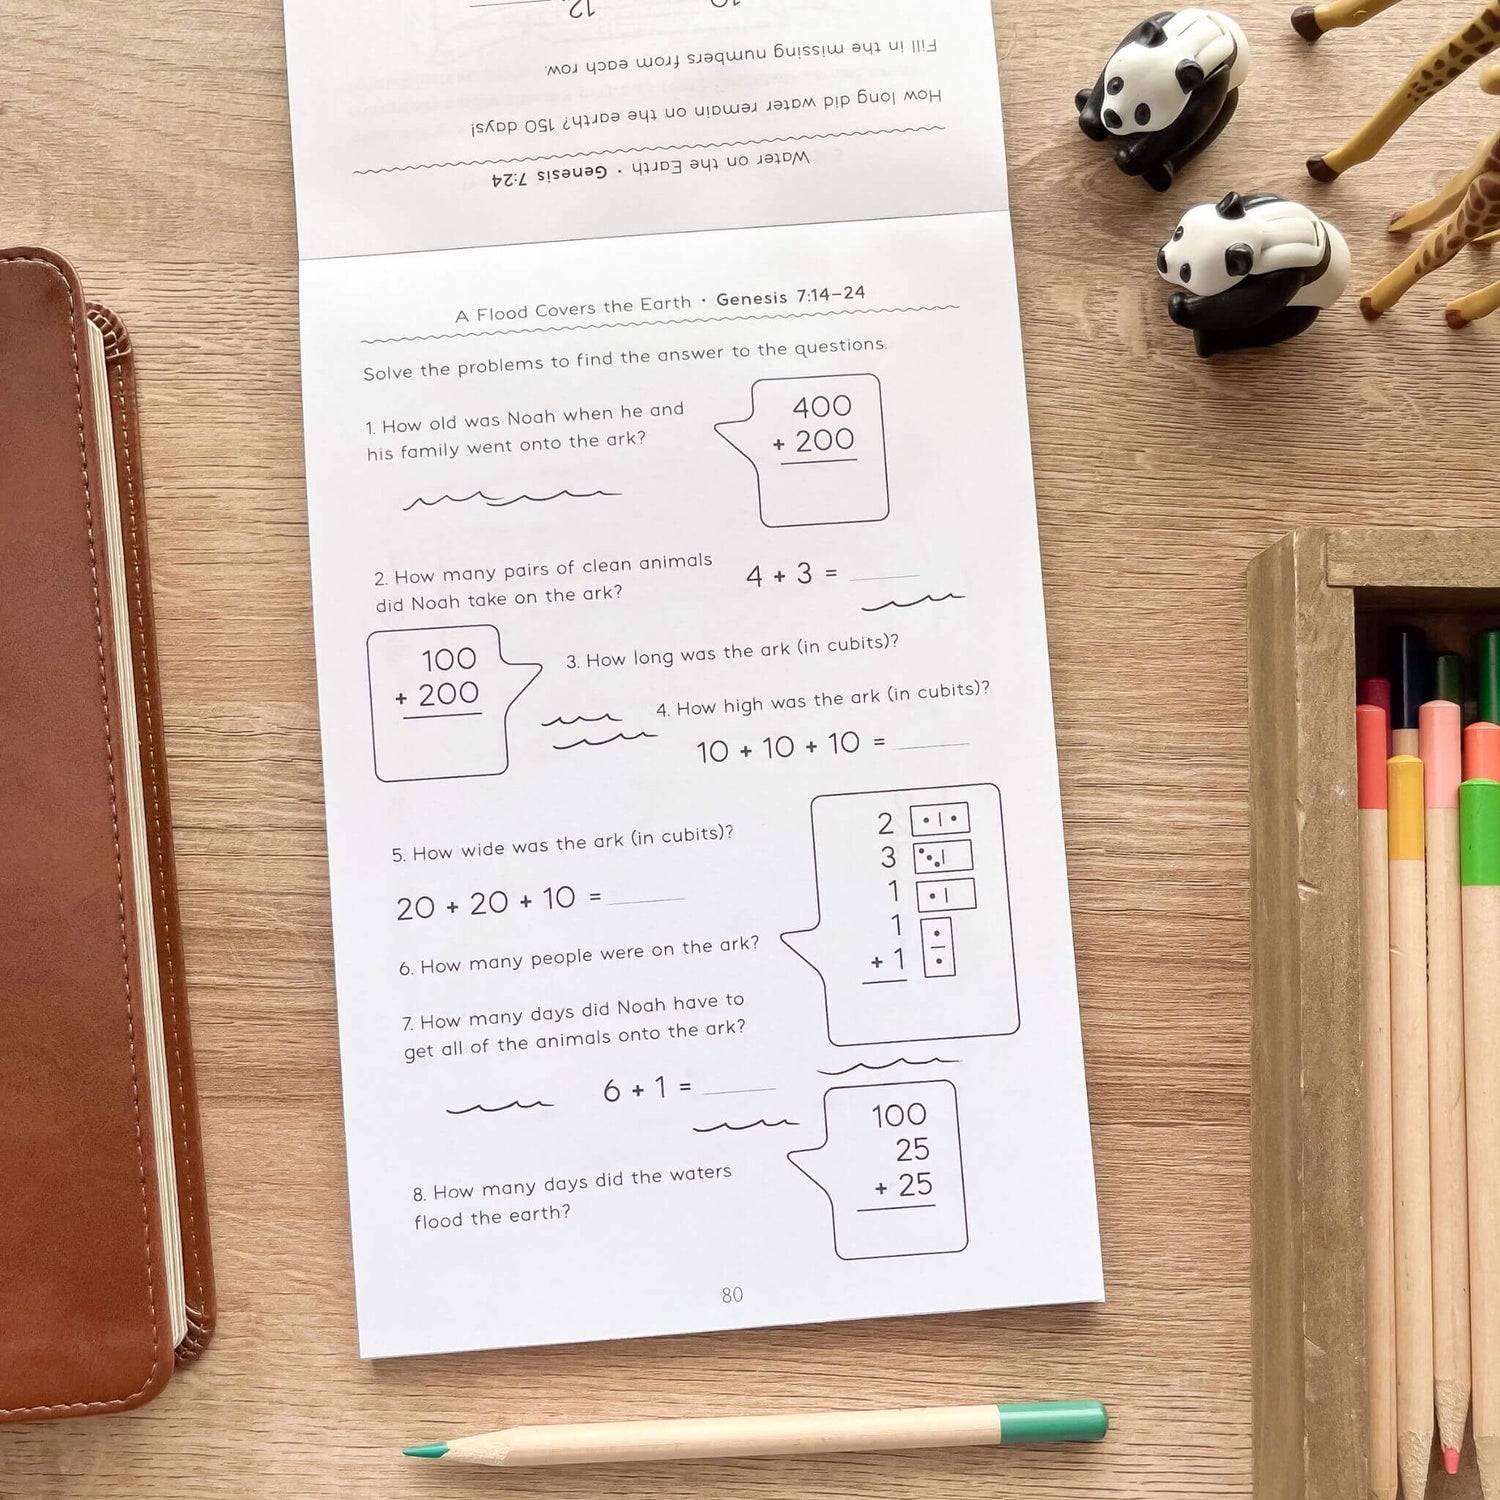 12
10
Fill in the missing numbers from each row.
How long did water remain on the earth? 150 days!
Water on the Earth • Genesis 7:24
A Flood Covers the Earth • Genesis 7:14–24
Solve the problems to find the answer to the questions.
1. How old was Noah when he and
his family went onto the ark?
400
+ 200
2. How many pairs of clean animals
did Noah take on the ark?
4 + 3 =
100
+ 200
3. How long was the ark (in cubits)?
4. How high was the ark (in cubits)?
10 + 10 + 10 =
5. How wide was the ark (in cubits)?
20 + 20 + 10 =
2
3
1
1
+ 1
6. How many people were on the ark?
7. How many days did Noah have to
get all of the animals onto the ark?
6 + 1 =
8. How many days did the waters
flood the earth?
100
25
+ 25
80